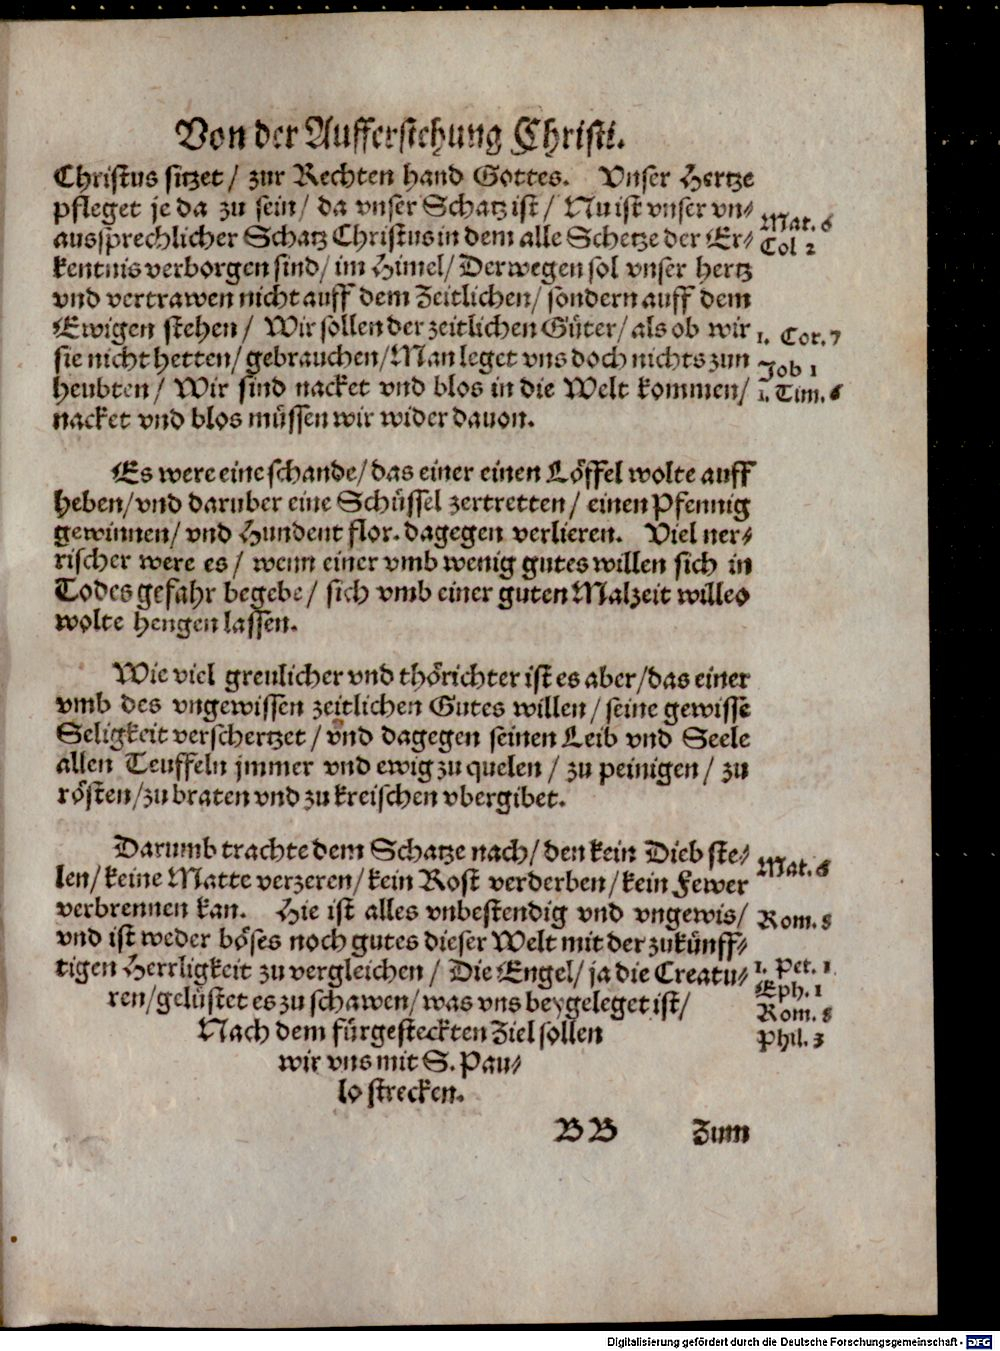 Von der Aufferstehung Christi.
Christus sitzet / zur Rechten hand Gottes. Vnser Hertze
pfleget je da zu sein / da vnser Schatz ist / Nu ist vnser vn⸗
aussprechlicher Schatz Christus in dem alle Schetze der Er⸗
kentnis verborgen sind / im Himel / Derwegen sol vnser hertz
vnd vertrawen nicht auff dem Zeitlichen / sondern auff dem
Ewigen stehen / Wir sollen der zeitlichen Güter / als ob wir
sie nicht hetten / gebrauchen / Man leget vns doch nichts zun
heubten / Wir sind nacket vnd blos in die Welt kommen /
nacket vnd blos müssen wir wider dauon.
Mat. 6
Col 2
1. Cor. 7
Job 1
1. Tim. 6
Es were eine schande / das einer einen Löffel wolte auff
heben / vnd daruber eine Schüssel zertretten / einen Pfennig
gewinnen / vnd Hundent flor. dagegen verlieren. Viel ner⸗
rischer were es / wenn einer vmb wenig gutes willen sich in
Todes gefahr begebe / sich vmb einer guten Malzeit willeo
wolte hengen lassen.
Wie viel greulicher vnd thörichter ist es aber / das einer
vmb des vngewissen zeitlichen Gutes willen / seine gewisse
Seligkeit verschertzet / vnd dagegen seinen Leib vnd Seele
allen Teuffeln jmmer vnd ewig zu quelen / zu peinigen / zu
rösten / zu braten vnd zu kreischen vbergibet.
Darumb trachte dem Schatze nach / den kein Dieb ste⸗
len / keine Matte verzeren / kein Rost verderben / kein Fewer
verbrennen kan. Hie ist alles vnbestendig vnd vngewis /
vnd ist weder böses noch gutes dieser Welt mit der zukünff⸗
tigen Herrligkeit zu vergleichen / Die Engel / ja die Creatu⸗
ren / gelüstet es zu schawen / was vns beygeleget ist /
Nach dem fürgesteckten Ziel sollen
wir vns mit S. Pau⸗
lo strecken.
Mat. 6
Rom. 8
1. Pet. 1
Eph. 1
Rom. 8
Phil. 3
BB Zum
Digitalisierung gefördert durch die Deutsche Forschungsgemeinschaft - DFG